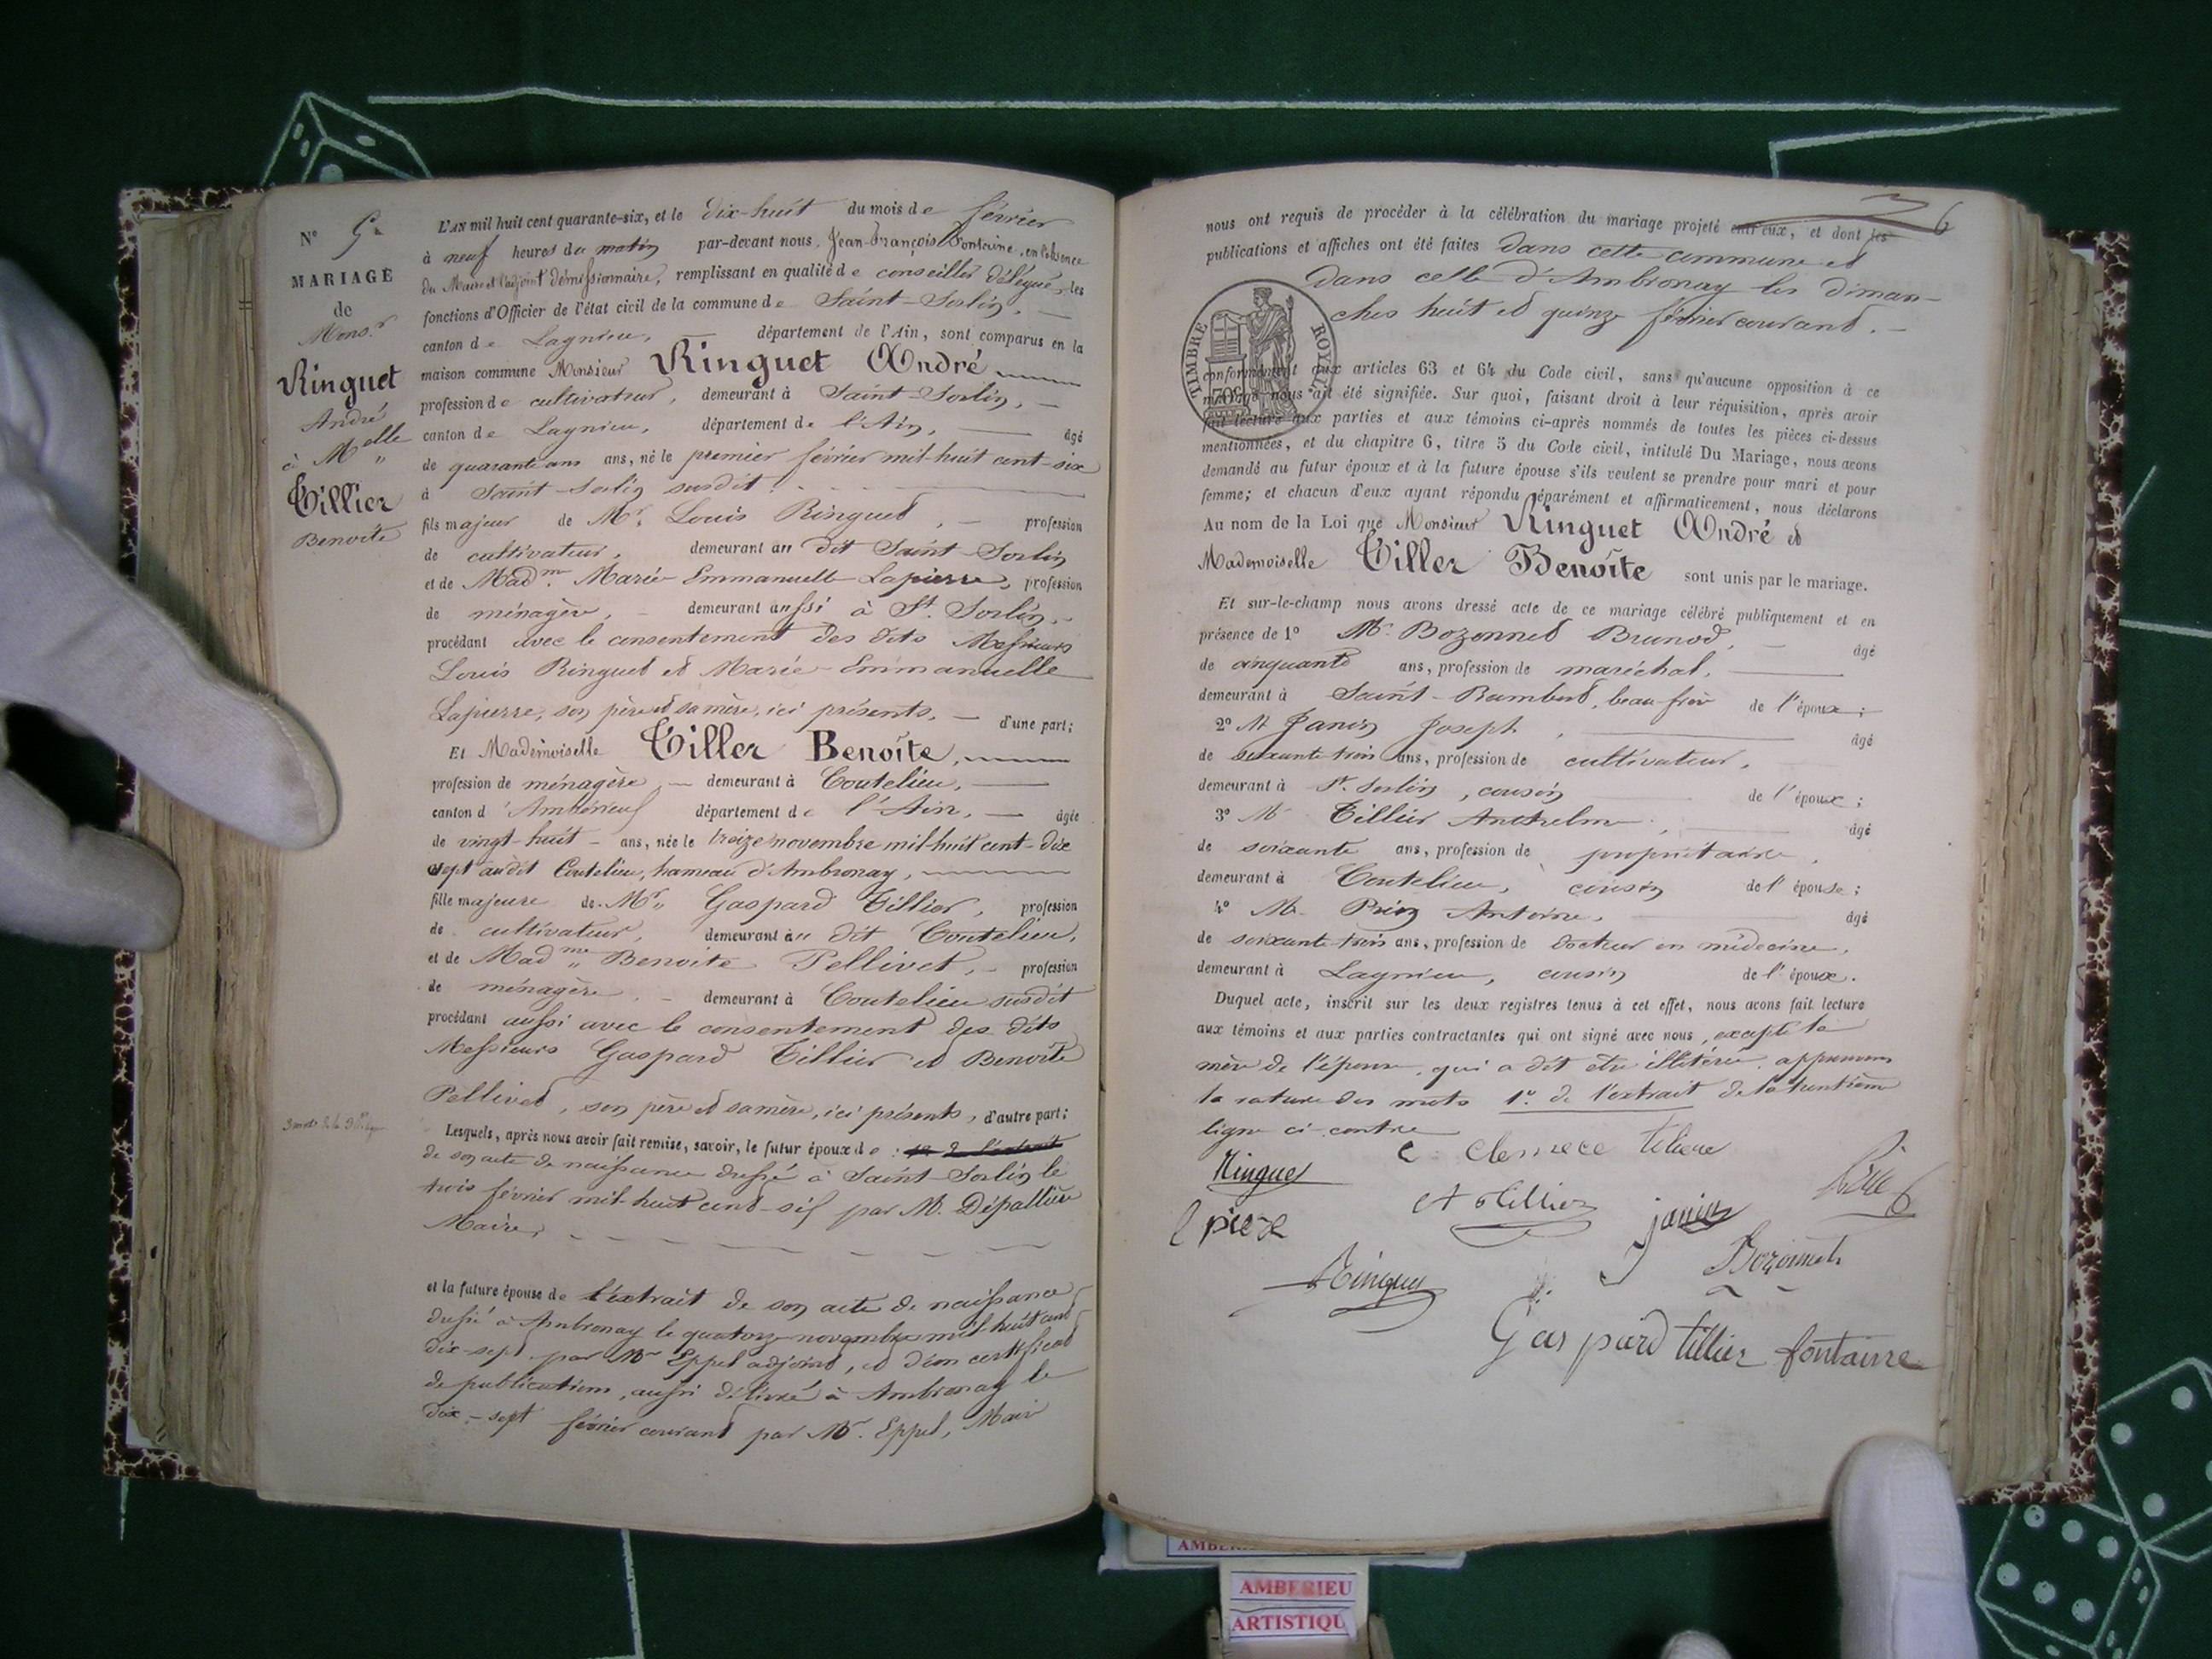 N° 5.
MARIAGE
de
Mons.r
Ringuet
André
à Melle
Tillier
Benoite
L'AN mil huit cent quarante-six, et le dix-huit du mois de février
à neuf heures du matin par-devant nous, Jean-François Fontaine, en l'absence
du Maire et l'adjoint démissionnaire, remplissant en qualité de conseiller délégué, les
fonctions d'Officier de l'état civil de la commune de Saint-Sorlin,
canton de Lagnieu, département de l'Ain, sont comparus en la
maison commune Monsieur Ringuet André
profession de cultivateur, demeurant à Saint-Sorlin,
canton de Lagnieu, département de l'Ain, âgé
de quarante ans ans, né le premier février mil-huit cent-six
à Saint-Sorlin susdit
fils majeur de Mr. Louis Ringuet, profession
de cultivateur, demeurant au dit Saint-Sorlin
et de Madme. Marie Emmanuelle Lapierre, profession
de ménagère, demeurant aussi à St. Sorlin,
procédant avec le consentement des dits Messieurs
Louis Ringuet et Marie-Emmanuelle
Lapierre, son père et sa mère, ici présents, d'une part;
Et Mademoiselle Tiller Benoîte,
profession de ménagère, demeurant à Coutelieu,
canton d'Ambérieuf département de l'Ain, âgée
de vingt-huit ans, née le treize novembre mil-huit cent-dix
sept au dit Coutelieu, hameau d'Ambronay,
fille majeure de Mr. Gaspard Tillier, profession
de cultivateur, demeurant au dit Coutelieu,
et de Madme Benoite Pellivet, profession
de ménagère, demeurant à Coutelieu susdit
procédant aussi avec le consentement des dits
Messieurs Gaspard Tillier et Benoîte
Pellivet, son père et sa mère, ici présents, d'autre part;
Lesquels, après nous avoir fait remise, savoir, le futur époux de : 1° de l'extrait
de son acte de naissance dressé à Saint-Sorlin le
trois février mil-huit cent-six par M. Dépallière
Maire,
et la future épouse de l'extrait de son acte de naissance
dressé à Ambronay le quatorze novembre mil-huit cent
dix-sept par Mr Eppel adjoint, et d'un certificat
de publication, aussi délivré à Ambronay le
dix-sept février courant par Mr. Eppel, Maire
6
nous ont requis de procéder à la célébration du mariage projeté entr'eux, et dont les
publications et affiches ont été faites dans cette commune et
dans celle d'Ambronay les diman-
ches huit et quinze février courant.
TIMBRE ROYAL
70c
conformément aux articles 63 et 64 du Code civil, sans qu'aucune opposition à ce
mariage nous ait été signifiée. Sur quoi, faisant droit à leur réquisition, après avoir
fait lecture aux parties et aux témoins ci-après nommés de toutes les pièces ci-dessus
mentionnées, et du chapitre 6, titre 5 du Code civil, intitulé Du Mariage, nous avons
demandé au futur époux et à la future épouse s'ils veulent se prendre pour mari et pour
femme; et chacun d'eux ayant répondu séparément et affirmativement, nous déclarons
Au nom de la Loi que Monsieur Ringuet André et
Mademoiselle Tiller Benoîte sont unis par le mariage.
Et sur-le-champ nous avons dressé acte de ce mariage célébré publiquement et en
présence de 1° Mr. Bozonnet Brunod, âgé
de cinquante ans, profession de maréchal,
demeurant à Saint-Rambert, beau frère de l'époux;
2° M Janin Joseph, âgé
de soixante trois ans, profession de cultivateur,
demeurant à St. Sorlin, cousin de l'époux;
3° M Tillier Anthelme, âgé
de soixante ans, profession de propriétaire,
demeurant à Coutelieu, cousin de l'épouse;
4° M. Antoine, âgé
de soixante trois ans, profession de docteur en médecine,
demeurant à Lagnieu, cousin de l'époux.
Duquel acte, inscrit sur les deux registres tenus à cet effet, nous avons fait lecture
aux témoins et aux parties contractantes qui ont signé avec nous, excepté la
mère de l'épouse, qui a dit être illitérée, approuvons
la rature des mots 1° de l'extrait de la trentième
ligne ci-contre
Ringuet
C. clemece tiliere
A tillier
janin
Bozonnet
Ringuet
Gaspard tillier fontaine
AMBERIEU
ARTISTIQU